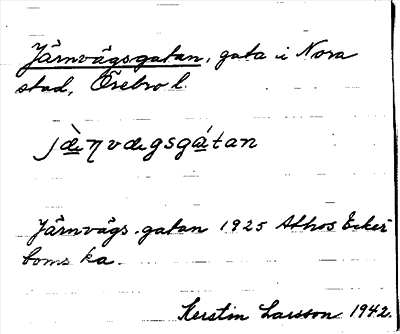 Järnvägsgatan, gata i Nora
stad, Örebro l.
jæ̀ŋvægsgátan
Järnvägs-gatan 1925 Athos Ecker-
boms ka.
Kerstin Larsson 1942.